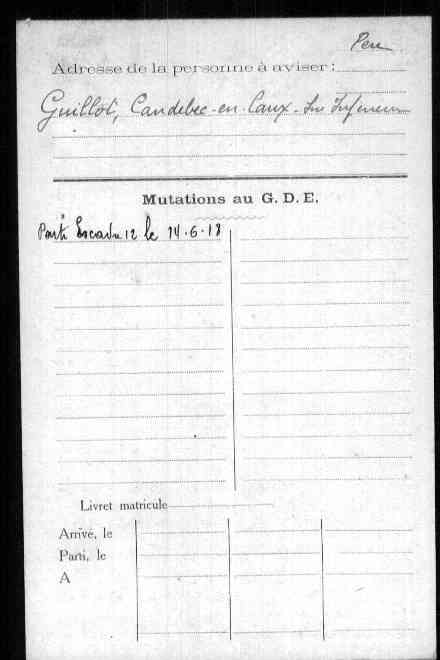 Père
Adresse de la personne à aviser :
Guillot, Caudebec-en-Caux - Sne Inférieure
Mutations au G. D. E.
Parti Escadr 12 le 14-6-18
Livret matricule
Arrivé, le
Parti, le
A